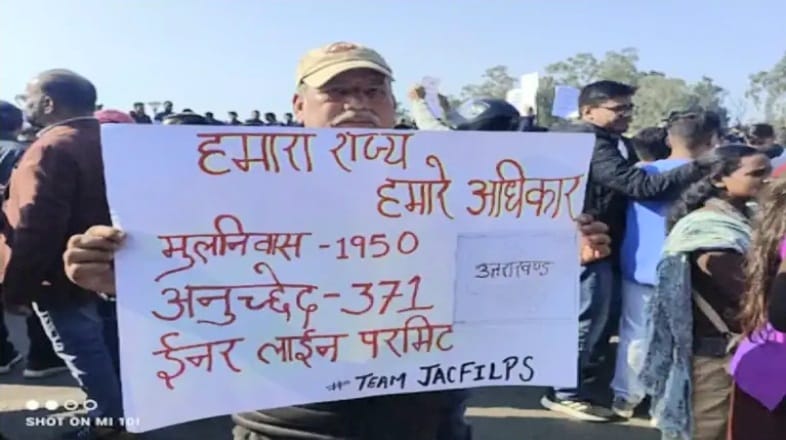 हमारा राज्य
हमारे अधिकार
मुलनिवास - 1950
उत्तराखण्ड
अनुच्छेद - 371
ईनर लाईन परमिट
# TEAM JACFILPS
SHOT ON MI 10I